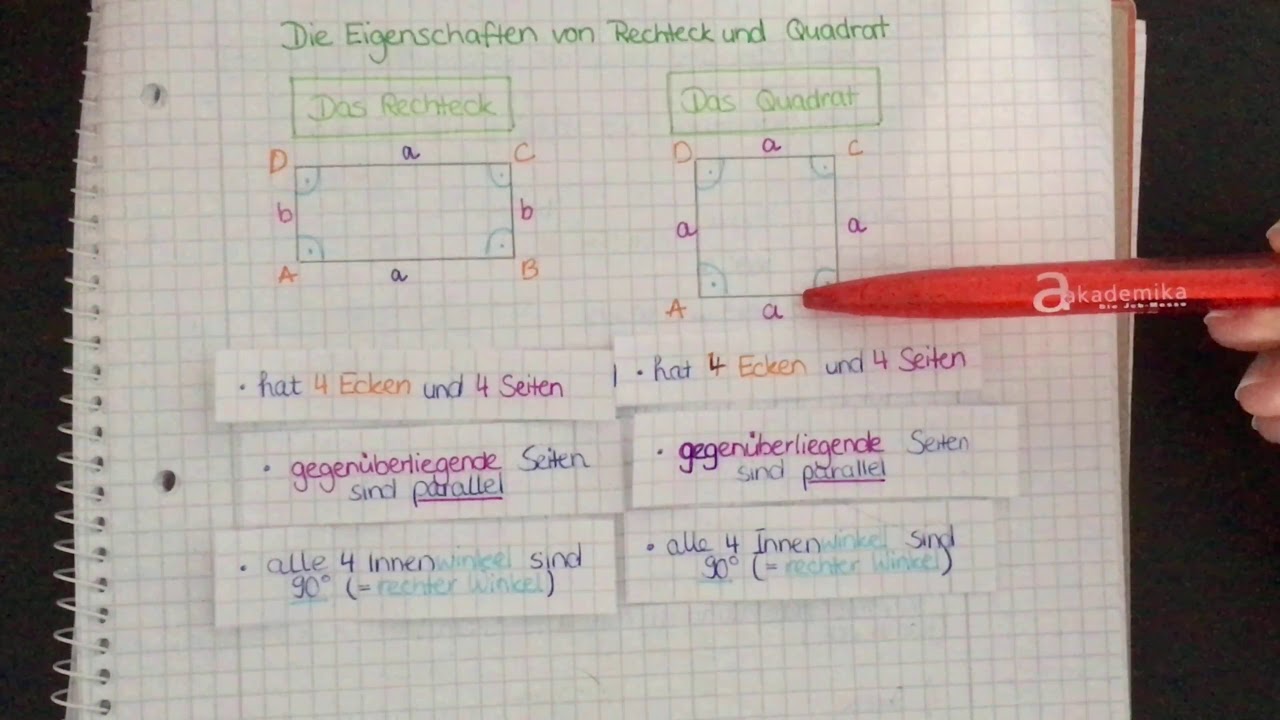 Die Eigenschaften von Rechteck und Quadrat
Das Rechteck
D a C
b b
A a B
• hat 4 Ecken und 4 Seiten
• gegenüberliegende Seiten
sind parallel
• alle 4 Innenwinkel sind
90° (= rechter Winkel)
Das Quadrat
D a C
a a
A a
• hat 4 Ecken und 4 Seiten
• gegenüberliegende Seiten
sind parallel
• alle 4 Innenwinkel sind
90° (= rechter Winkel)
akademika
Die Job-Messe